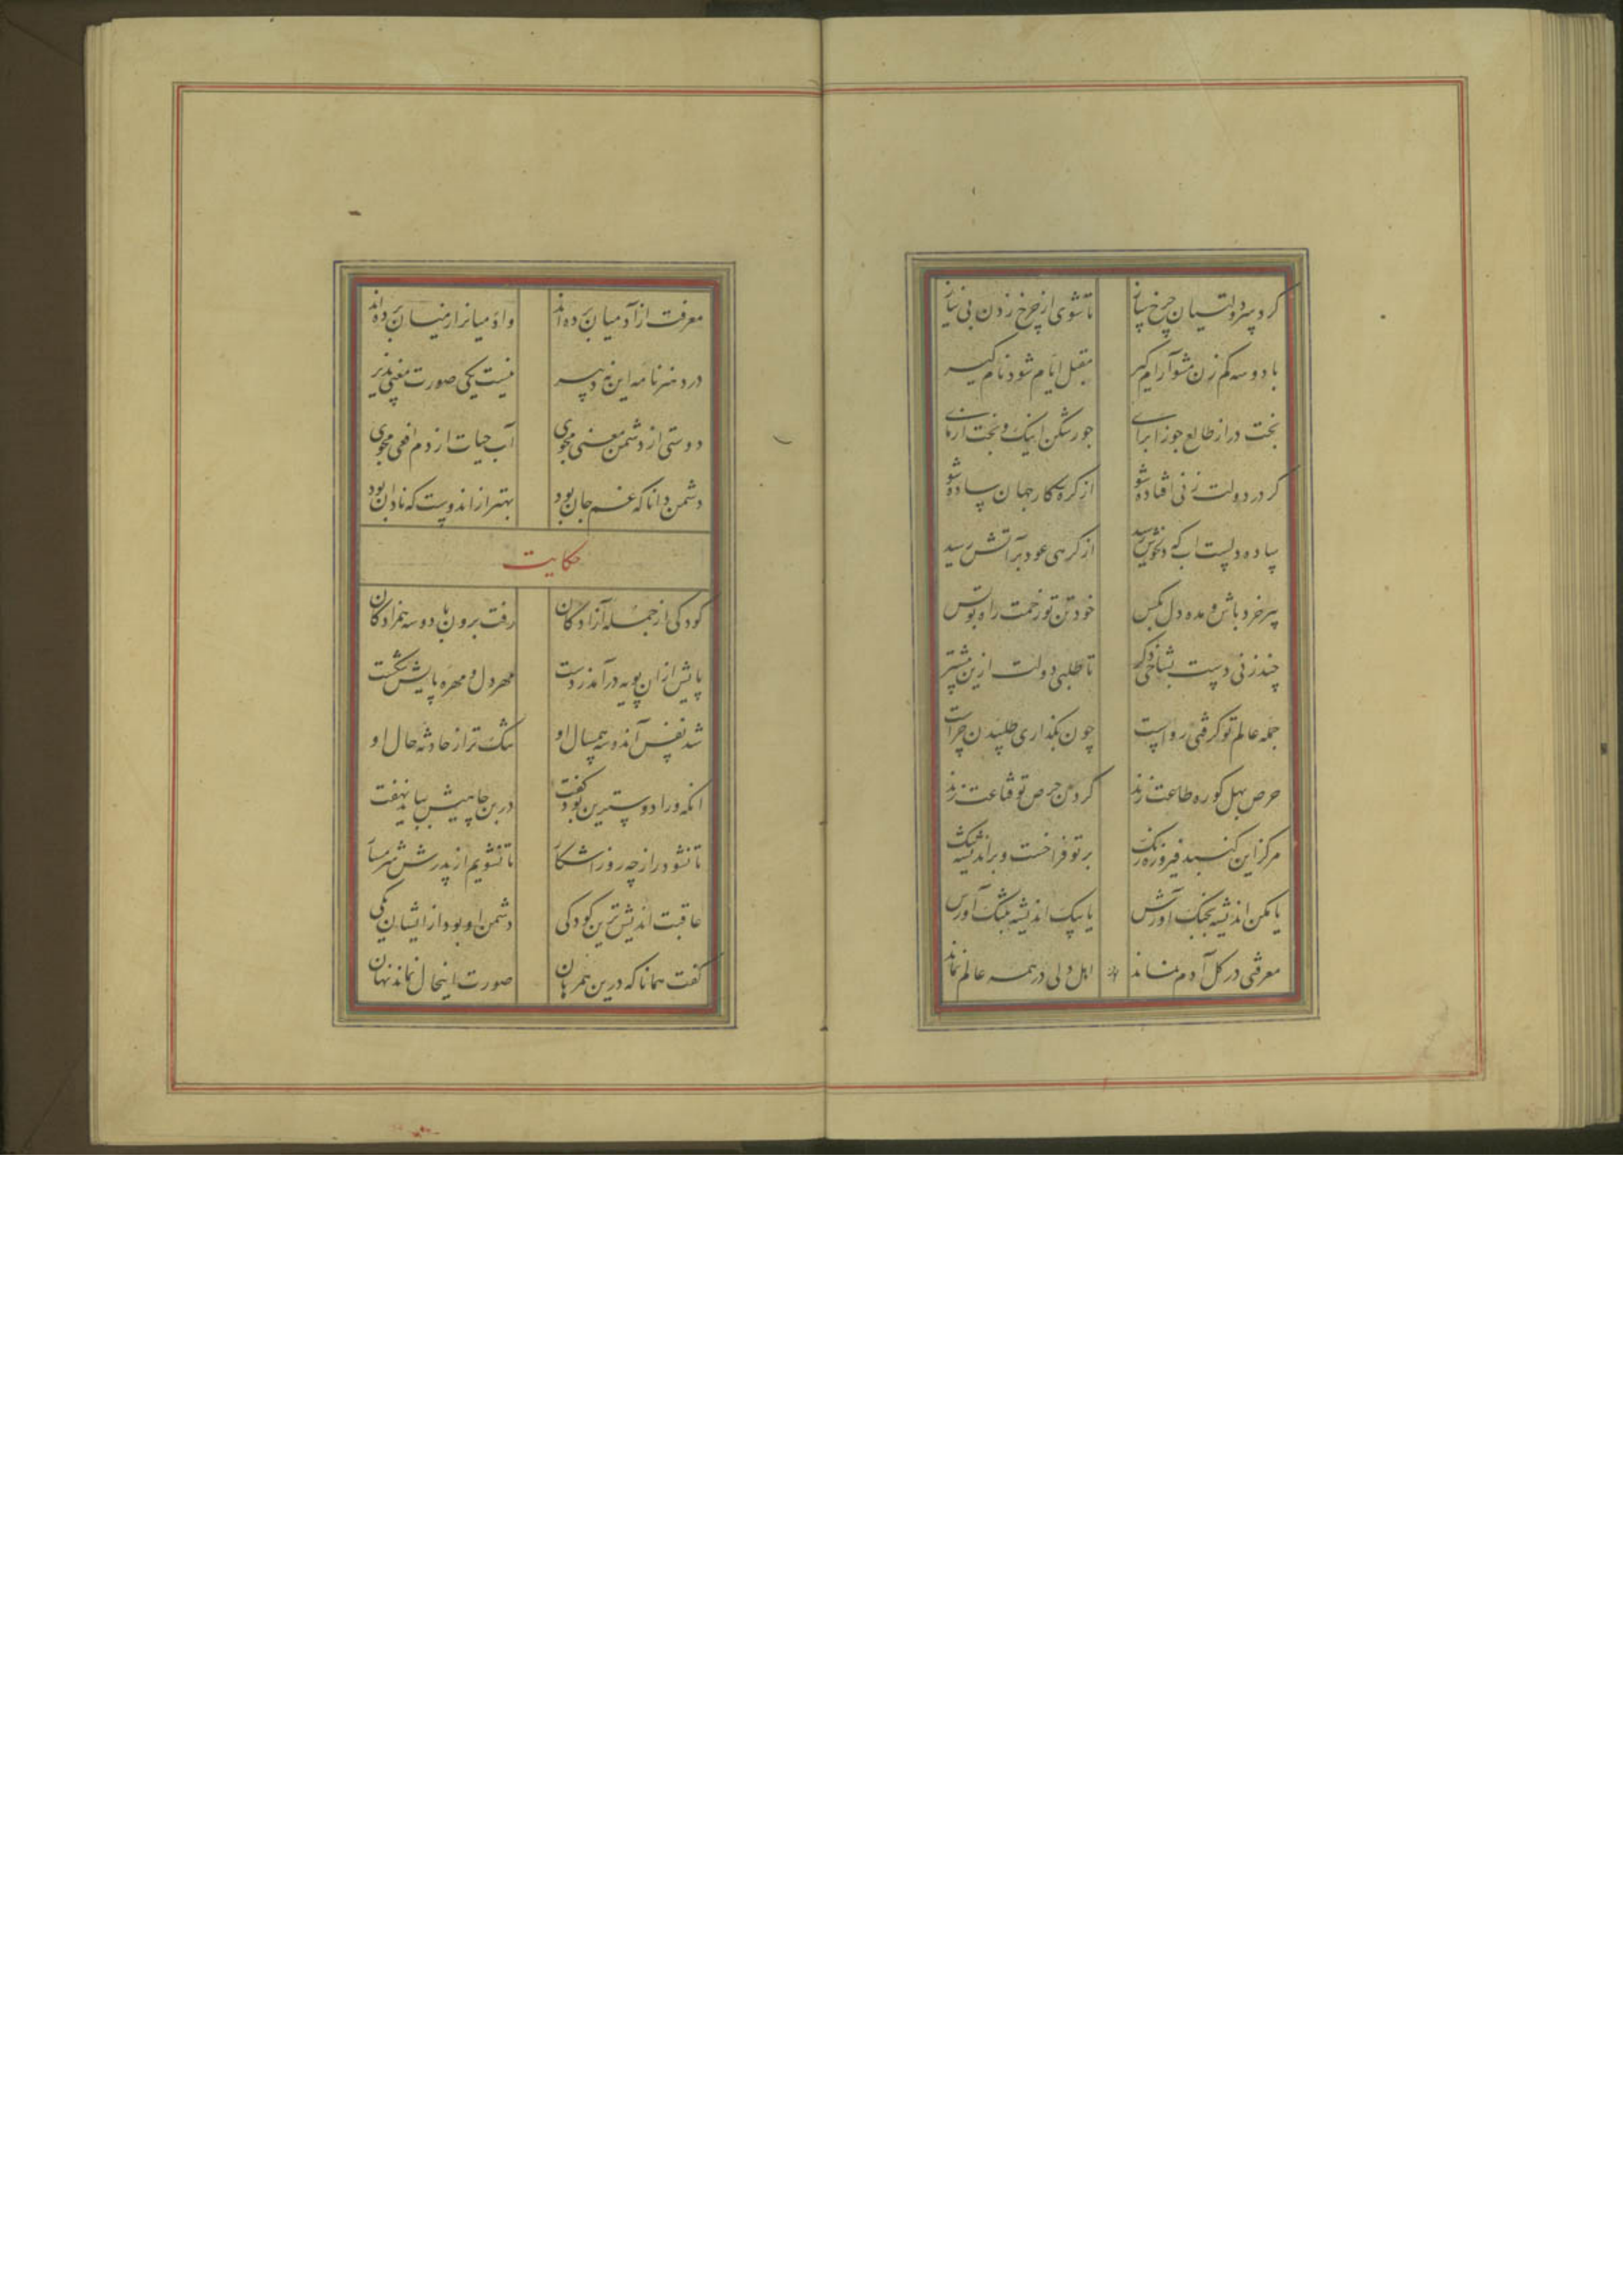 گرد سر دولتیان چرخ ساز تا شوی از چرخ زدن بی نیاز
با دو سه کم زن مشو آرام گیر مقبل ایام شو و نام گیر
بخت در از طالع جوزا برای جوز شکن اینک و بخت آزمای
گر در دولت زنی افتاده شو از گره کار جهان ساده شو
ساده دلست آب که دلخوش رسید از گرهی عود بر آتش رسید
پیر خرد باش و مده دل بکس خود تن تو زحمت راه تو بس
چند زنی دست بشاخ دگر تا طلبی دولت ازین بیشتر
جمله عالم تو گرفتی رواست چون بگذاری طلبیدن چراست
حرص بهل کو ره طاعت زند گردن حرص تو قناعت زند
مرکز این گنبد فیروزه رنگ بر تو فراخست و بر اندیشه تنگ
یا مکن اندیشه بجنگ آورش یا بیک اندیشه بتنگ آورش
معرفتی در گل آدم نماند اهل دلی در همه عالم نماند
معرفت از آدمیان برده اند وادمیانرا ز میان برده اند
در دو هنر نامه این نه دبیر نیست یکی صورت معنی پذیر
دوستی از دشمن معنی مجوی آب حیات از دم افعی مجوی
دشمن دانا که غم جان بود بهتر از اندوست که نادان بود
حکایت
کودکی از جمله آزادگان رفت برون با دو سه همزادگان
پایش از ان پویه درآمد ز دست مهر دل و مهره پایش شکست
شد نفس آندو سه همسال او تنک تر از حادثه حال او
انکه ورا دوسترین بود گفت در بن چاهیش بباید نهفت
تا نشود راز چه روز اشکار تا نشویم از پدرش شرمسار
عاقبت اندیش ترین کودکی دشمن او بود از ایشان یکی
گفت همانا که درین همرهان صورت اینحال نماند نهان